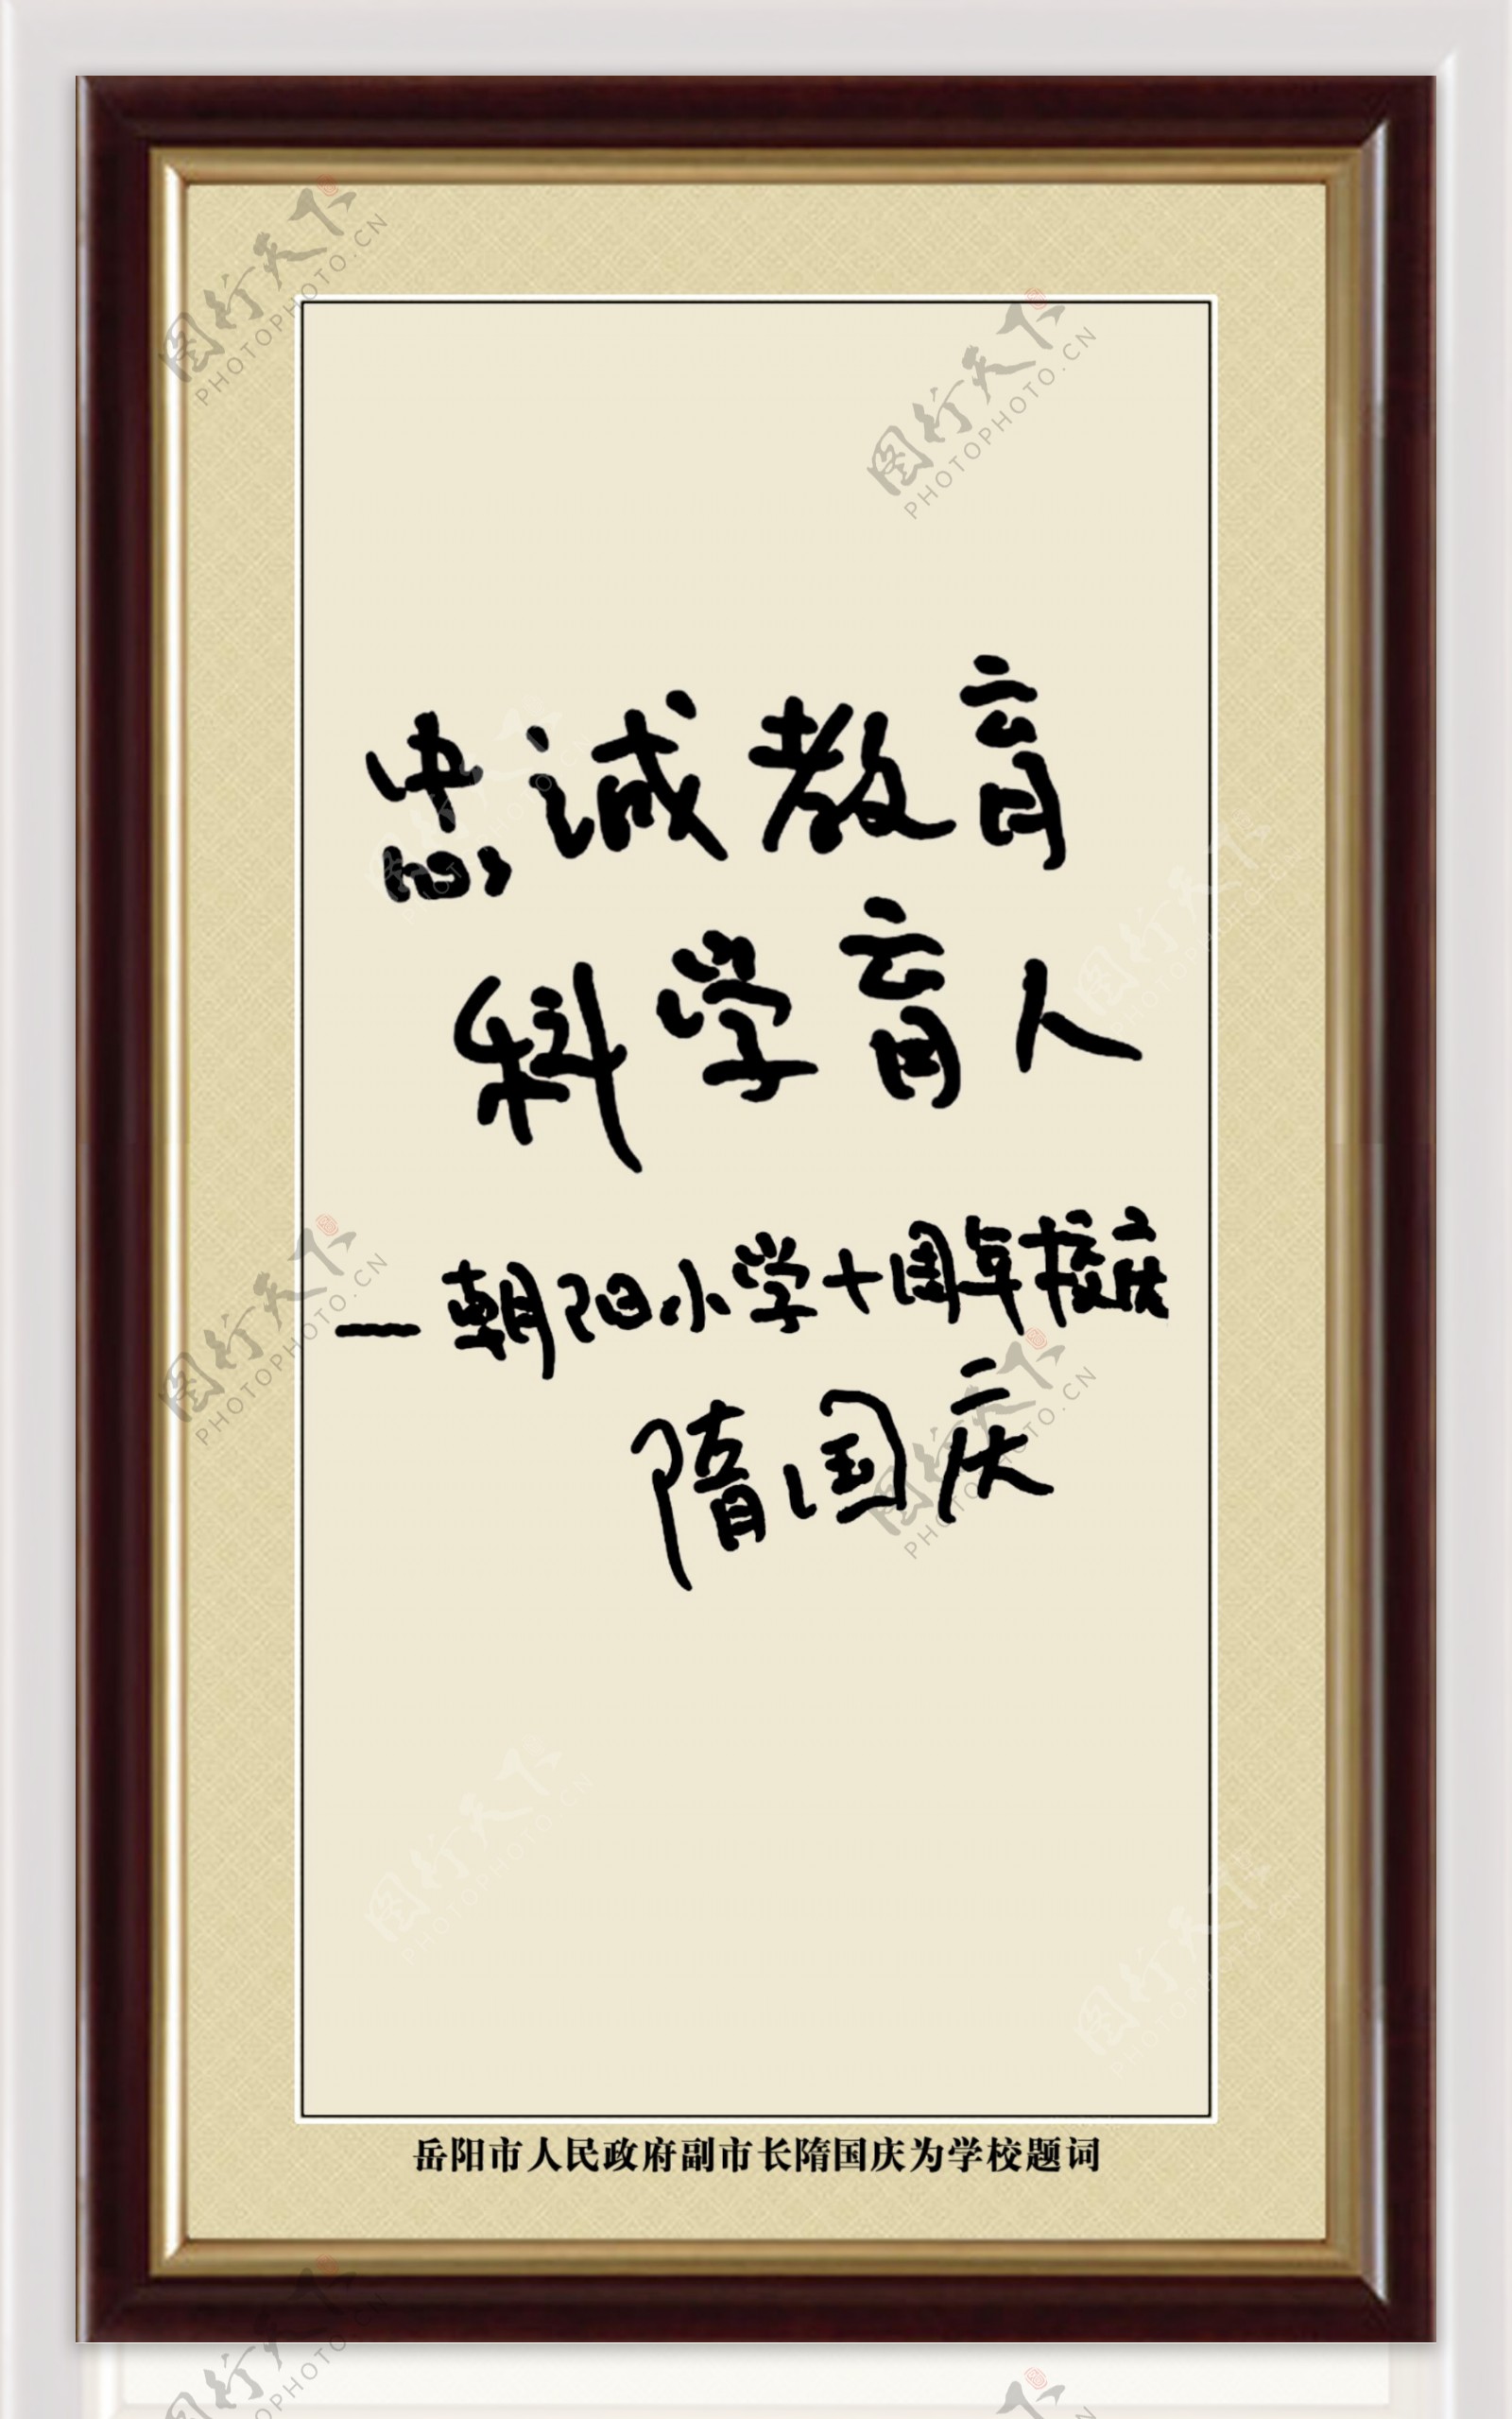 忠诚教育
科学育人
—朝阳小学十周年校庆
隋国庆
岳阳市人民政府副市长隋国庆为学校题词
图行天下
PHOTOPHOTO.CN